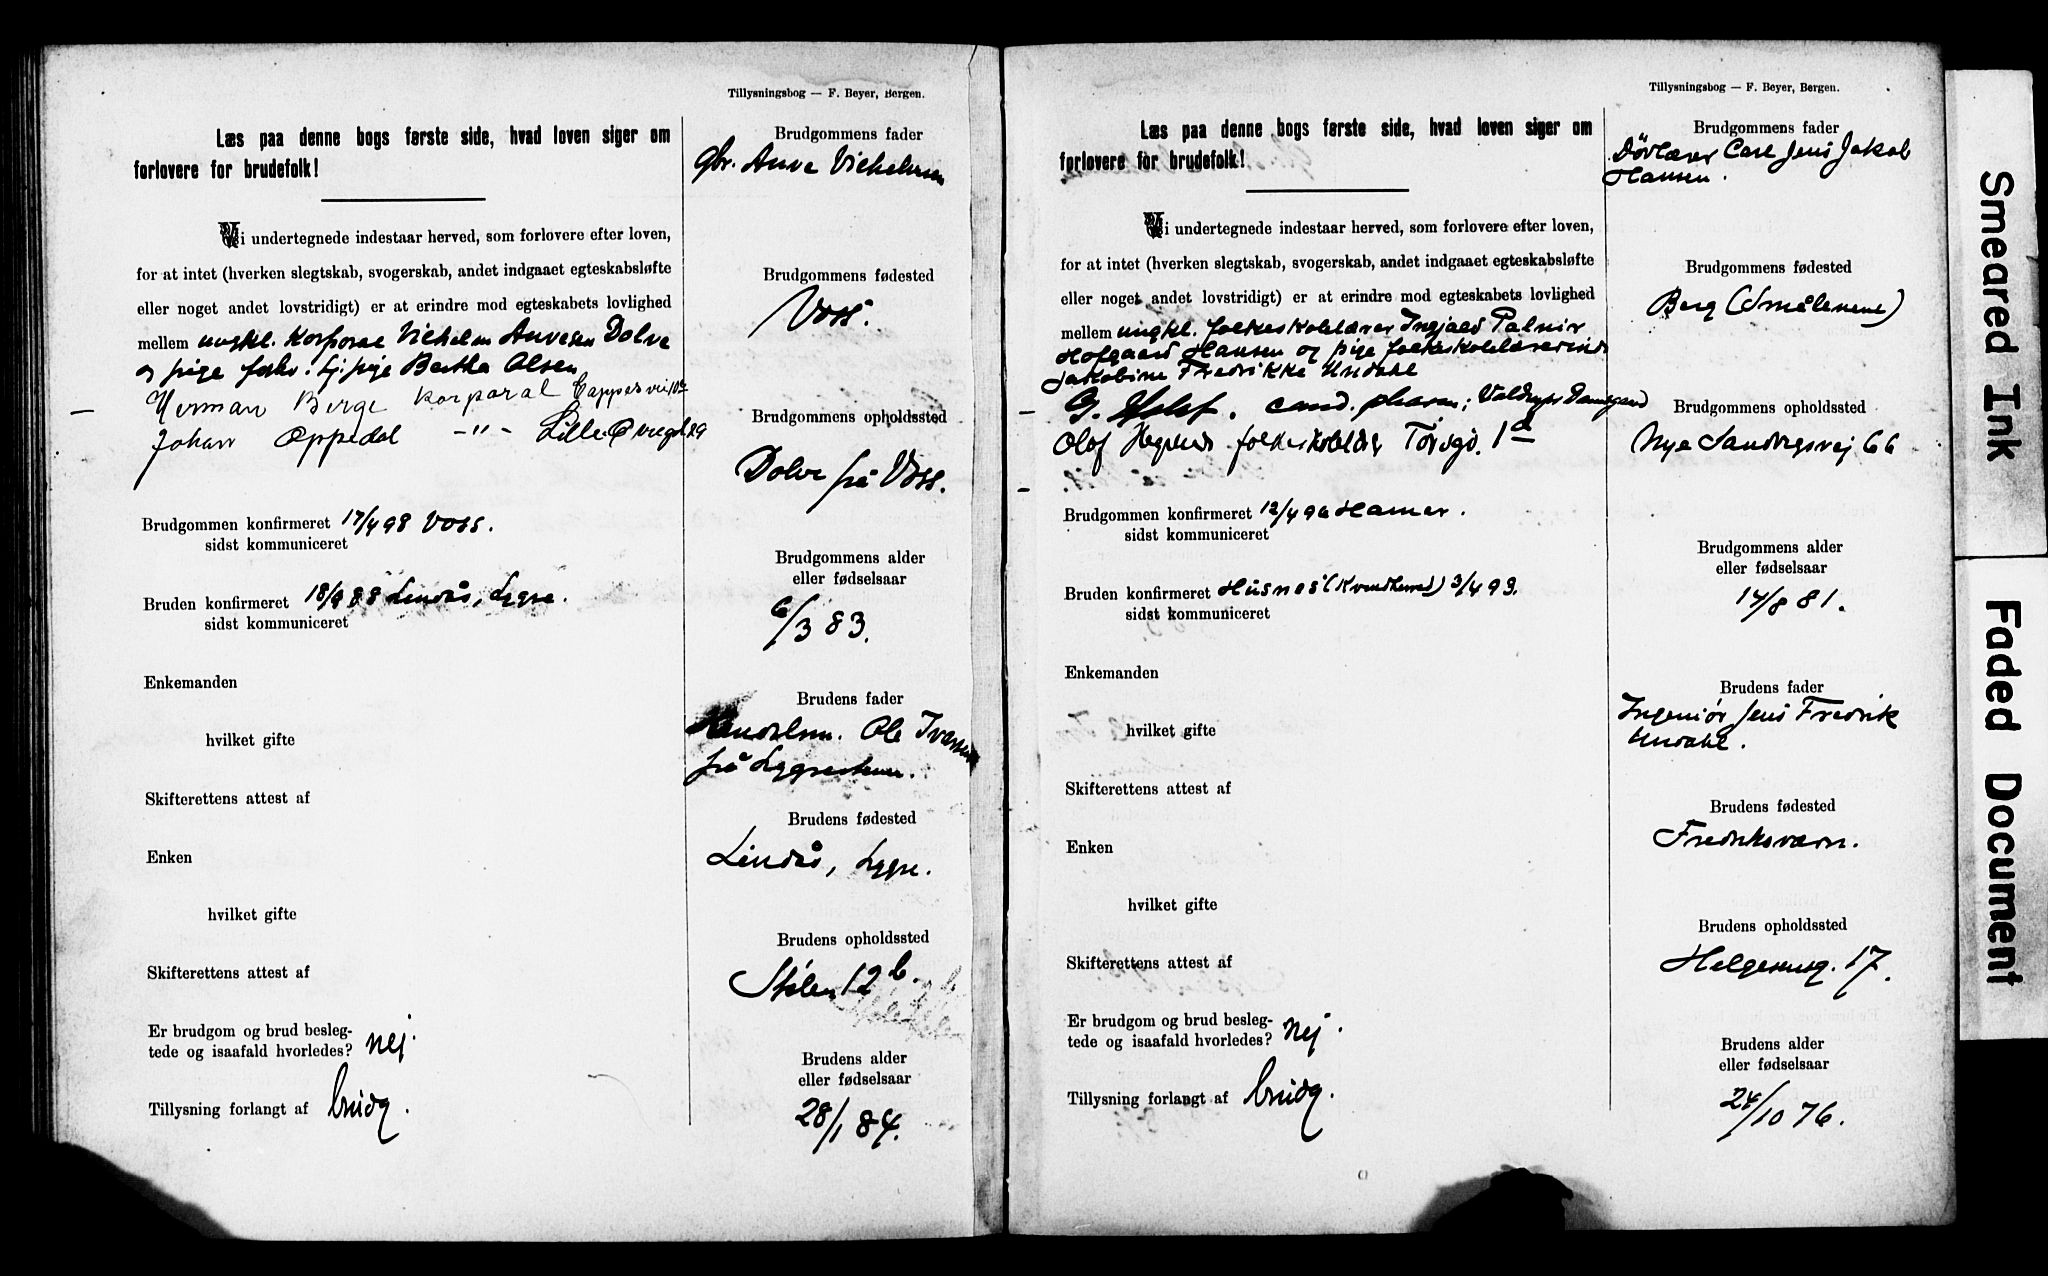 Tillysningsbog — F. Beyer, Bergen.
Læs paa denne bogs første side, hvad loven siger om
forlovere for brudefolk!
Vi undertegnede indestaar herved, som forlovere efter loven,
for at intet (hverken slegtskab, svogerskab, andet indgaaet egteskabsløfte
eller noget andet lovstridigt) er at erindre mod egteskabets lovlighed
mellem ungkl. Korporal Vilhelm Anvesen Dolve
og pige forhv. tj.pige Bertha Olsen
Herman Berge korporal
Johan Oppedal —"—
Brudgommen konfirmeret 17/4 98 Voss.
sidst kommuniceret
Bruden konfirmeret Lindås, Lygre.
sidst kommuniceret
Enkemanden
hvilket gifte
Skifterettens attest af
Enken
hvilket gifte
Skifterettens attest af
Er brudgom og brud besleg-
tede og isaafald hvorledes? nej.
Tillysning forlangt af brudg.
Brudgommens fader
Gbr. Anve Vilhelmsen
Brudgommens fødested
Voss.
Brudgommens opholdssted
Dolve på Voss.
Brudgommens alder
eller fødselsaar
6/3 83.
Brudens fader
Handelsm. Ole Iversen
på
Brudens fødested
Lindås, Lygre.
Brudens opholdssted
Stølen 12 b.
Brudens alder
eller fødselsaar
28/1 84.
Tillysningsbog — F. Beyer, Bergen.
Læs paa denne bogs første side, hvad loven siger om
forlovere for brudefolk!
Vi undertegnede indestaar herved, som forlovere efter loven,
for at intet (hverken slegtskab, svogerskab, andet indgaaet egteskabsløfte
eller noget andet lovstridigt) er at erindre mod egteskabets lovlighed
mellem ungkl. folkeskolelærer Ingjald Palnir
Hofgaard Hansen og pige folkeskolelærerinde
Jakobine Fredrikke Undahl
cand. pharm;
Olof folkeskolelær Torvgd. 1 a
Brudgommen konfirmeret 12/4 96 Hamar.
sidst kommuniceret
Bruden konfirmeret Husnes (Kvindherred) 3/4 93.
sidst kommuniceret
Enkemanden
hvilket gifte
Skifterettens attest af
Enken
hvilket gifte
Skifterettens attest af
Er brudgom og brud besleg-
tede og isaafald hvorledes? nej.
Tillysning forlangt af brudg.
Brudgommens fader
Døvlærer Carl Jens Jakob
Hansen.
Brudgommens fødested
Berg (Smålenene)
Brudgommens opholdssted
Nye Sandvigsvej 66
Brudgommens alder
eller fødselsaar
17/8 81.
Brudens fader
Ingeniør Jens Fredrik
Undahl.
Brudens fødested
Fredriksværn.
Brudens opholdssted
Helgesensg. 17.
Brudens alder
eller fødselsaar
24/10 76.
Smeared Ink
Faded Document